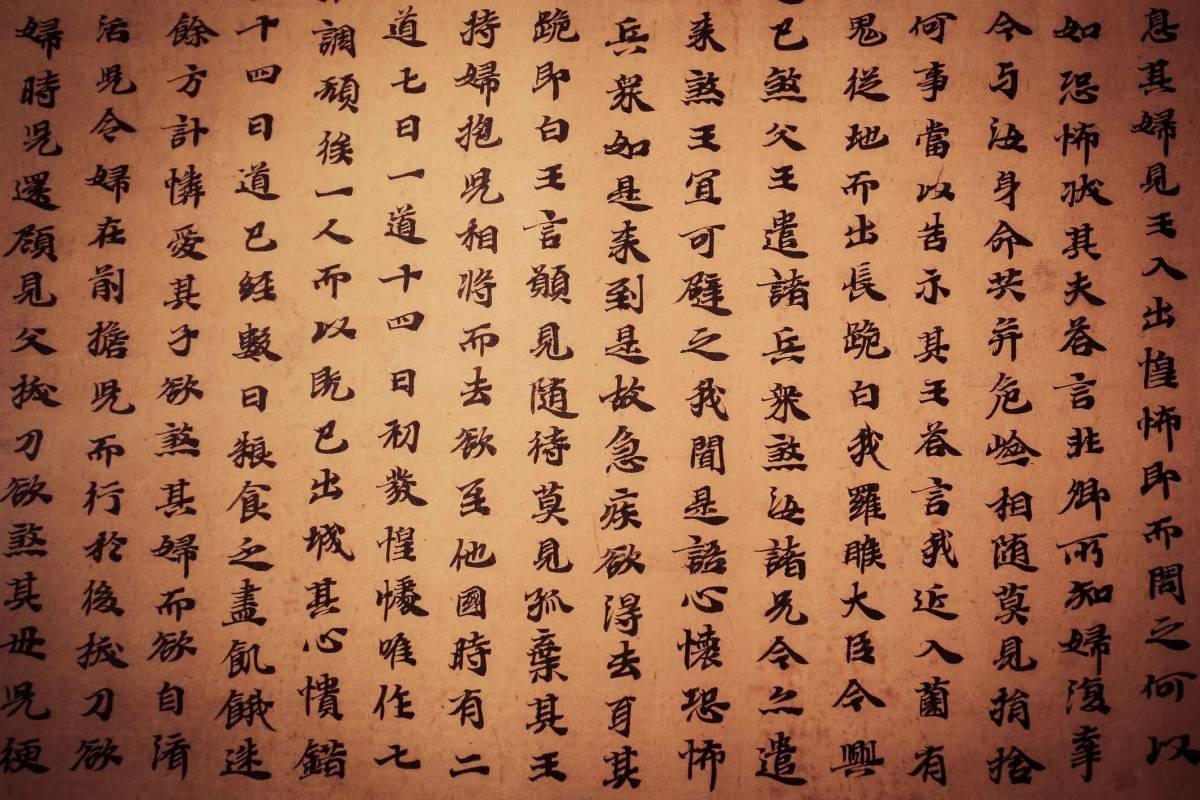 息其婦見王入出惶怖即而問之何以
如恐怖状其夫荅言非卿所知婦復牽
今与汝身命共并危嶮相随莫見捐捨
何事當以告示其王荅言我近入薗有
鬼従地而出長跪白我羅睺大臣今興
已煞父王遣諸兵衆煞汝諸兄今亦遣
来煞王冝可避之我聞是語心懷恐怖
兵衆如是来到是故急疾欲得去耳其
跪即白王言願見随待莫見孤棄其王
持婦抱兒相将而去欲至他國時有二
道七日一道十四日初發惶懅唯作七
調頋俟一人而以既已出城其心憒錯
十四日道已經數日粮食乏盡飢餓迷
餘方計憐愛其子欲煞其婦而欲自濟
活兒令婦在前擔兒而行於後拔刀欲
婦時兒還顧見父拔刀欲煞其母兒梗